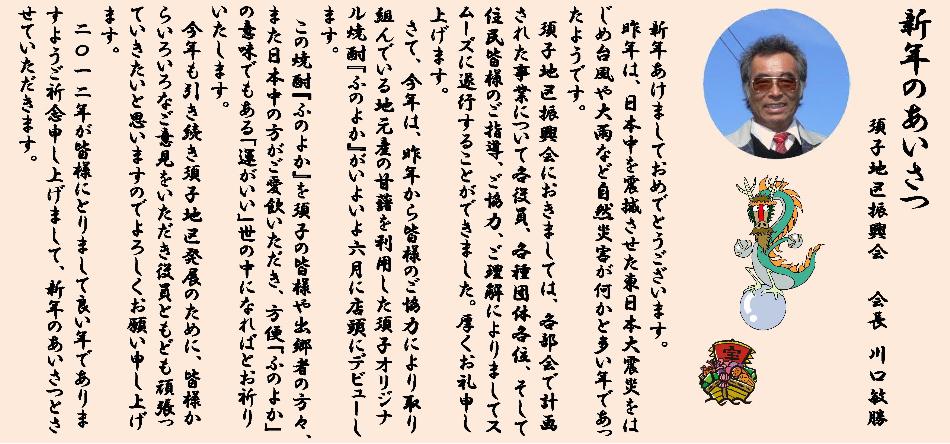 新年のあいさつ
須子地区振興会　会長　川口敏勝
新年あけましておめでとうございます。
昨年は、日本中を震撼させた東日本大震災をは
じめ台風や大雨など自然災害が何かと多い年であっ
たようです。
須子地区振興会におきましては、各部会で計画
された事業について各役員、各種団体各位、そして
住民皆様のご指導、ご協力、ご理解によりましてス
ムーズに遂行することができました。厚くお礼申し
上げます。
さて、今年は、昨年から皆様のご協力により取り
組んでいる地元産の甘藷を利用した須子オリジナ
ル焼酎『ふのよか』がいよいよ六月に店頭にデビューし
ます。
この焼酎『ふのよか』を須子の皆様や出郷者の方々、
また日本中の方がご愛飲いただき、方便「ふのよか」
の意味でもある「運がいい」世の中になればとお祈り
いたします。
今年も引き続き須子地区発展のために、皆様か
らいろいろなご意見をいただき役員ともども頑張っ
ていきたいと思いますのでよろしくお願い申し上げ
ます。
二〇一二年が皆様にとりまして良い年でありま
すようご祈念申し上げまして、新年のあいさつとさ
せていただきます。
宝